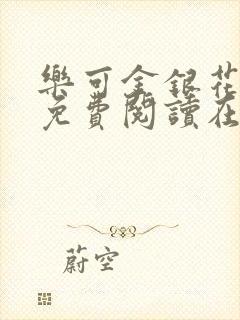 樂可金銀花
免費閱讀在
蔚空